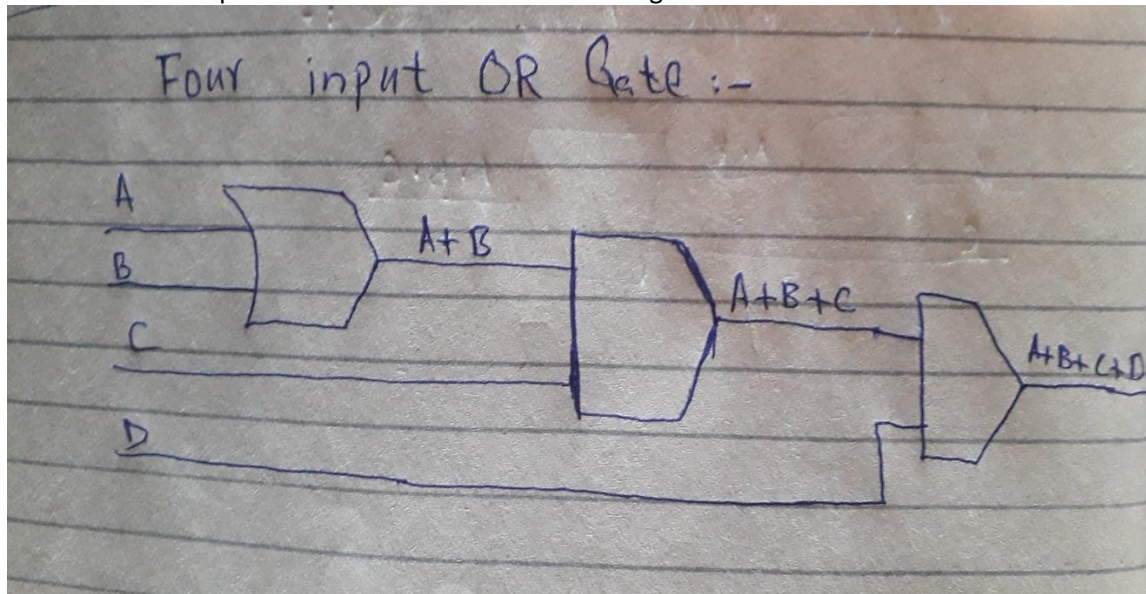 Four input OR Gate :-
A
B
A+B
C
A+B+C
D
A+B+C+D